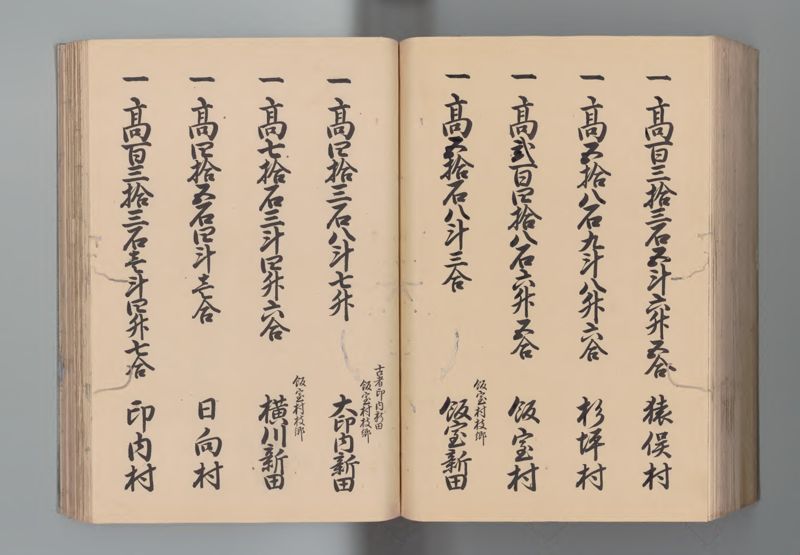 一高百三拾三石五斗六升五合 猿俣村
一高五拾八石九斗八升六合 杉坪村
一高弐百四拾八石六升五合 飯室村
飯室村枝郷
一高五拾石八斗三合 飯室新田
古者印内新田
飯室村枝郷
一高四拾三石八斗七升 大印内新田
飯室村枝郷
一高七拾石三斗四升六合 横川新田
一高四拾五石四斗壱合 日向村
一高百三拾三石壱斗四升七合 印内村